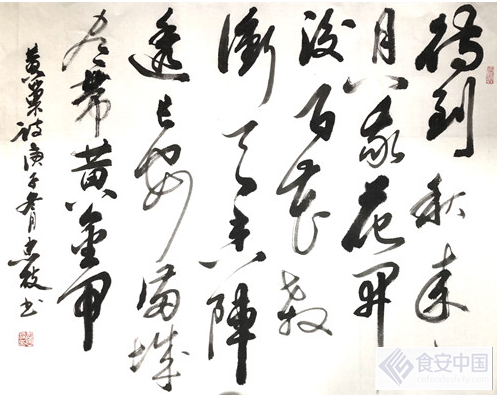 待到秋来
月八我花开
後百花殺
衝天香陣
透长安满城
尽帶黄金甲
黄巢诗庚子冬月
书
食安中国